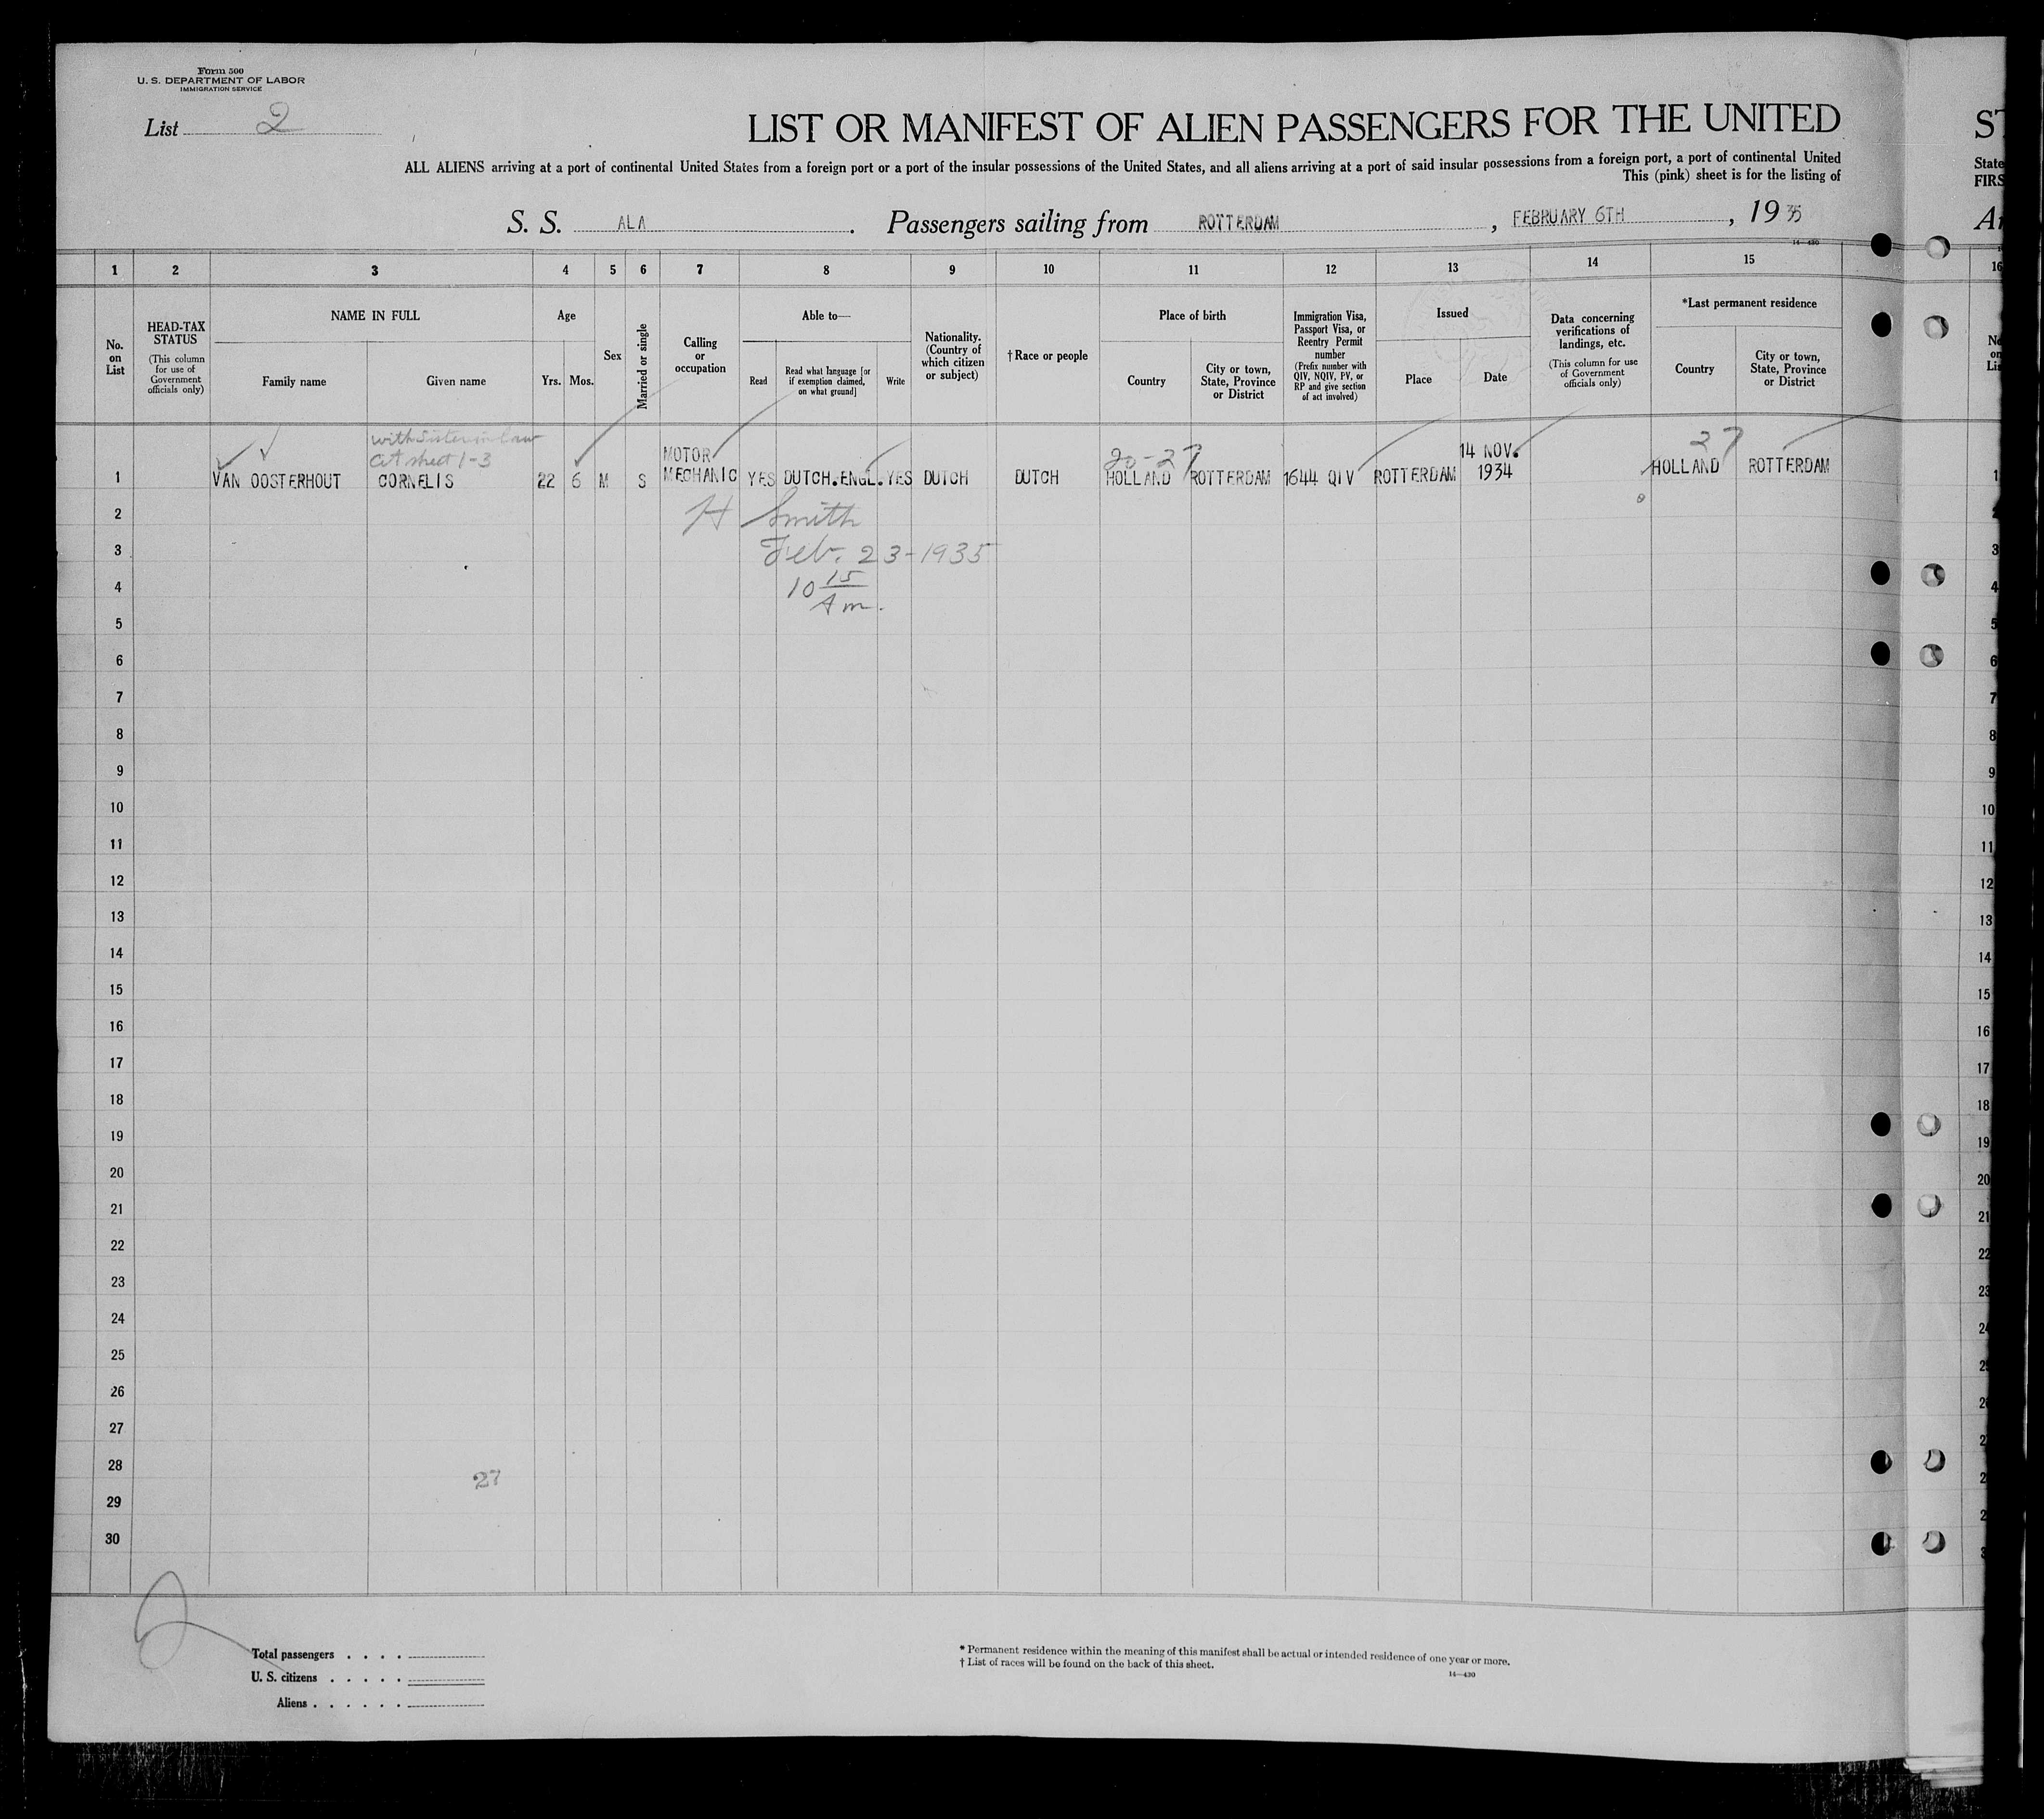 Form 500
U. S. DEPARTMENT OF LABOR
IMMIGRATION SERVICE
List 2
LIST OR MANIFEST OF ALIEN PASSENGERS FOR THE UNITED
ALL ALIENS arriving at a port of continental United States from a foreign port or a port of the insular possessions of the United States, and all aliens arriving at a port of said insular possessions from a foreign port, a port of continental United
This (pink) sheet is for the listing of
State
FIRS
S. S. ALA. Passengers sailing from ROTTERDAM, FEBRUARY 6TH, 19 35
14—430
1 2 3 4 5 6 7 8 9 10 11 12 13 14 15 16
No. on List
HEAD-TAX STATUS
(This column for use of Government officials only)
NAME IN FULL
Family name
Given name
Age
Yrs.
Mos.
Sex
Married or single
Calling or occupation
Able to—
Read
Read what language [or if exemption claimed, on what ground]
Write
Nationality. (Country of which citizen or subject)
† Race or people
Place of birth
Country
City or town, State, Province or District
Immigration Visa, Passport Visa, or Reentry Permit number
(Prefix number with QIV, NQIV, PV, or RP and give section of act involved)
Issued
Place
Date
Data concerning verifications of landings, etc.
(This column for use of Government officials only)
*Last permanent residence
Country
City or town, State, Province or District
with Sister in law
cit sheet 1-3
20-27
27
1 VAN OOSTERHOUT CORNELIS 22 6 M S MOTOR MECHANIC YES DUTCH.ENGL. YES DUTCH DUTCH HOLLAND ROTTERDAM 1644 QIV ROTTERDAM 14 NOV. 1934 HOLLAND ROTTERDAM 1
2 H Smith 2
3 Feb. 23-1935 3
4 10 15 Am. 4
5 5
6 6
7 7
8 8
9 9
10 10
11 11
12 12
13 13
14 14
15 15
16 16
17 17
18 18
19 19
20 20
21 21
22 22
23 23
24
25
26
27
28 27
29
30
2
Total passengers . . . .
U. S. citizens . . . . .
Aliens . . . . . .
* Permanent residence within the meaning of this manifest shall be actual or intended residence of one year or more.
† List of races will be found on the back of this sheet.
14—430